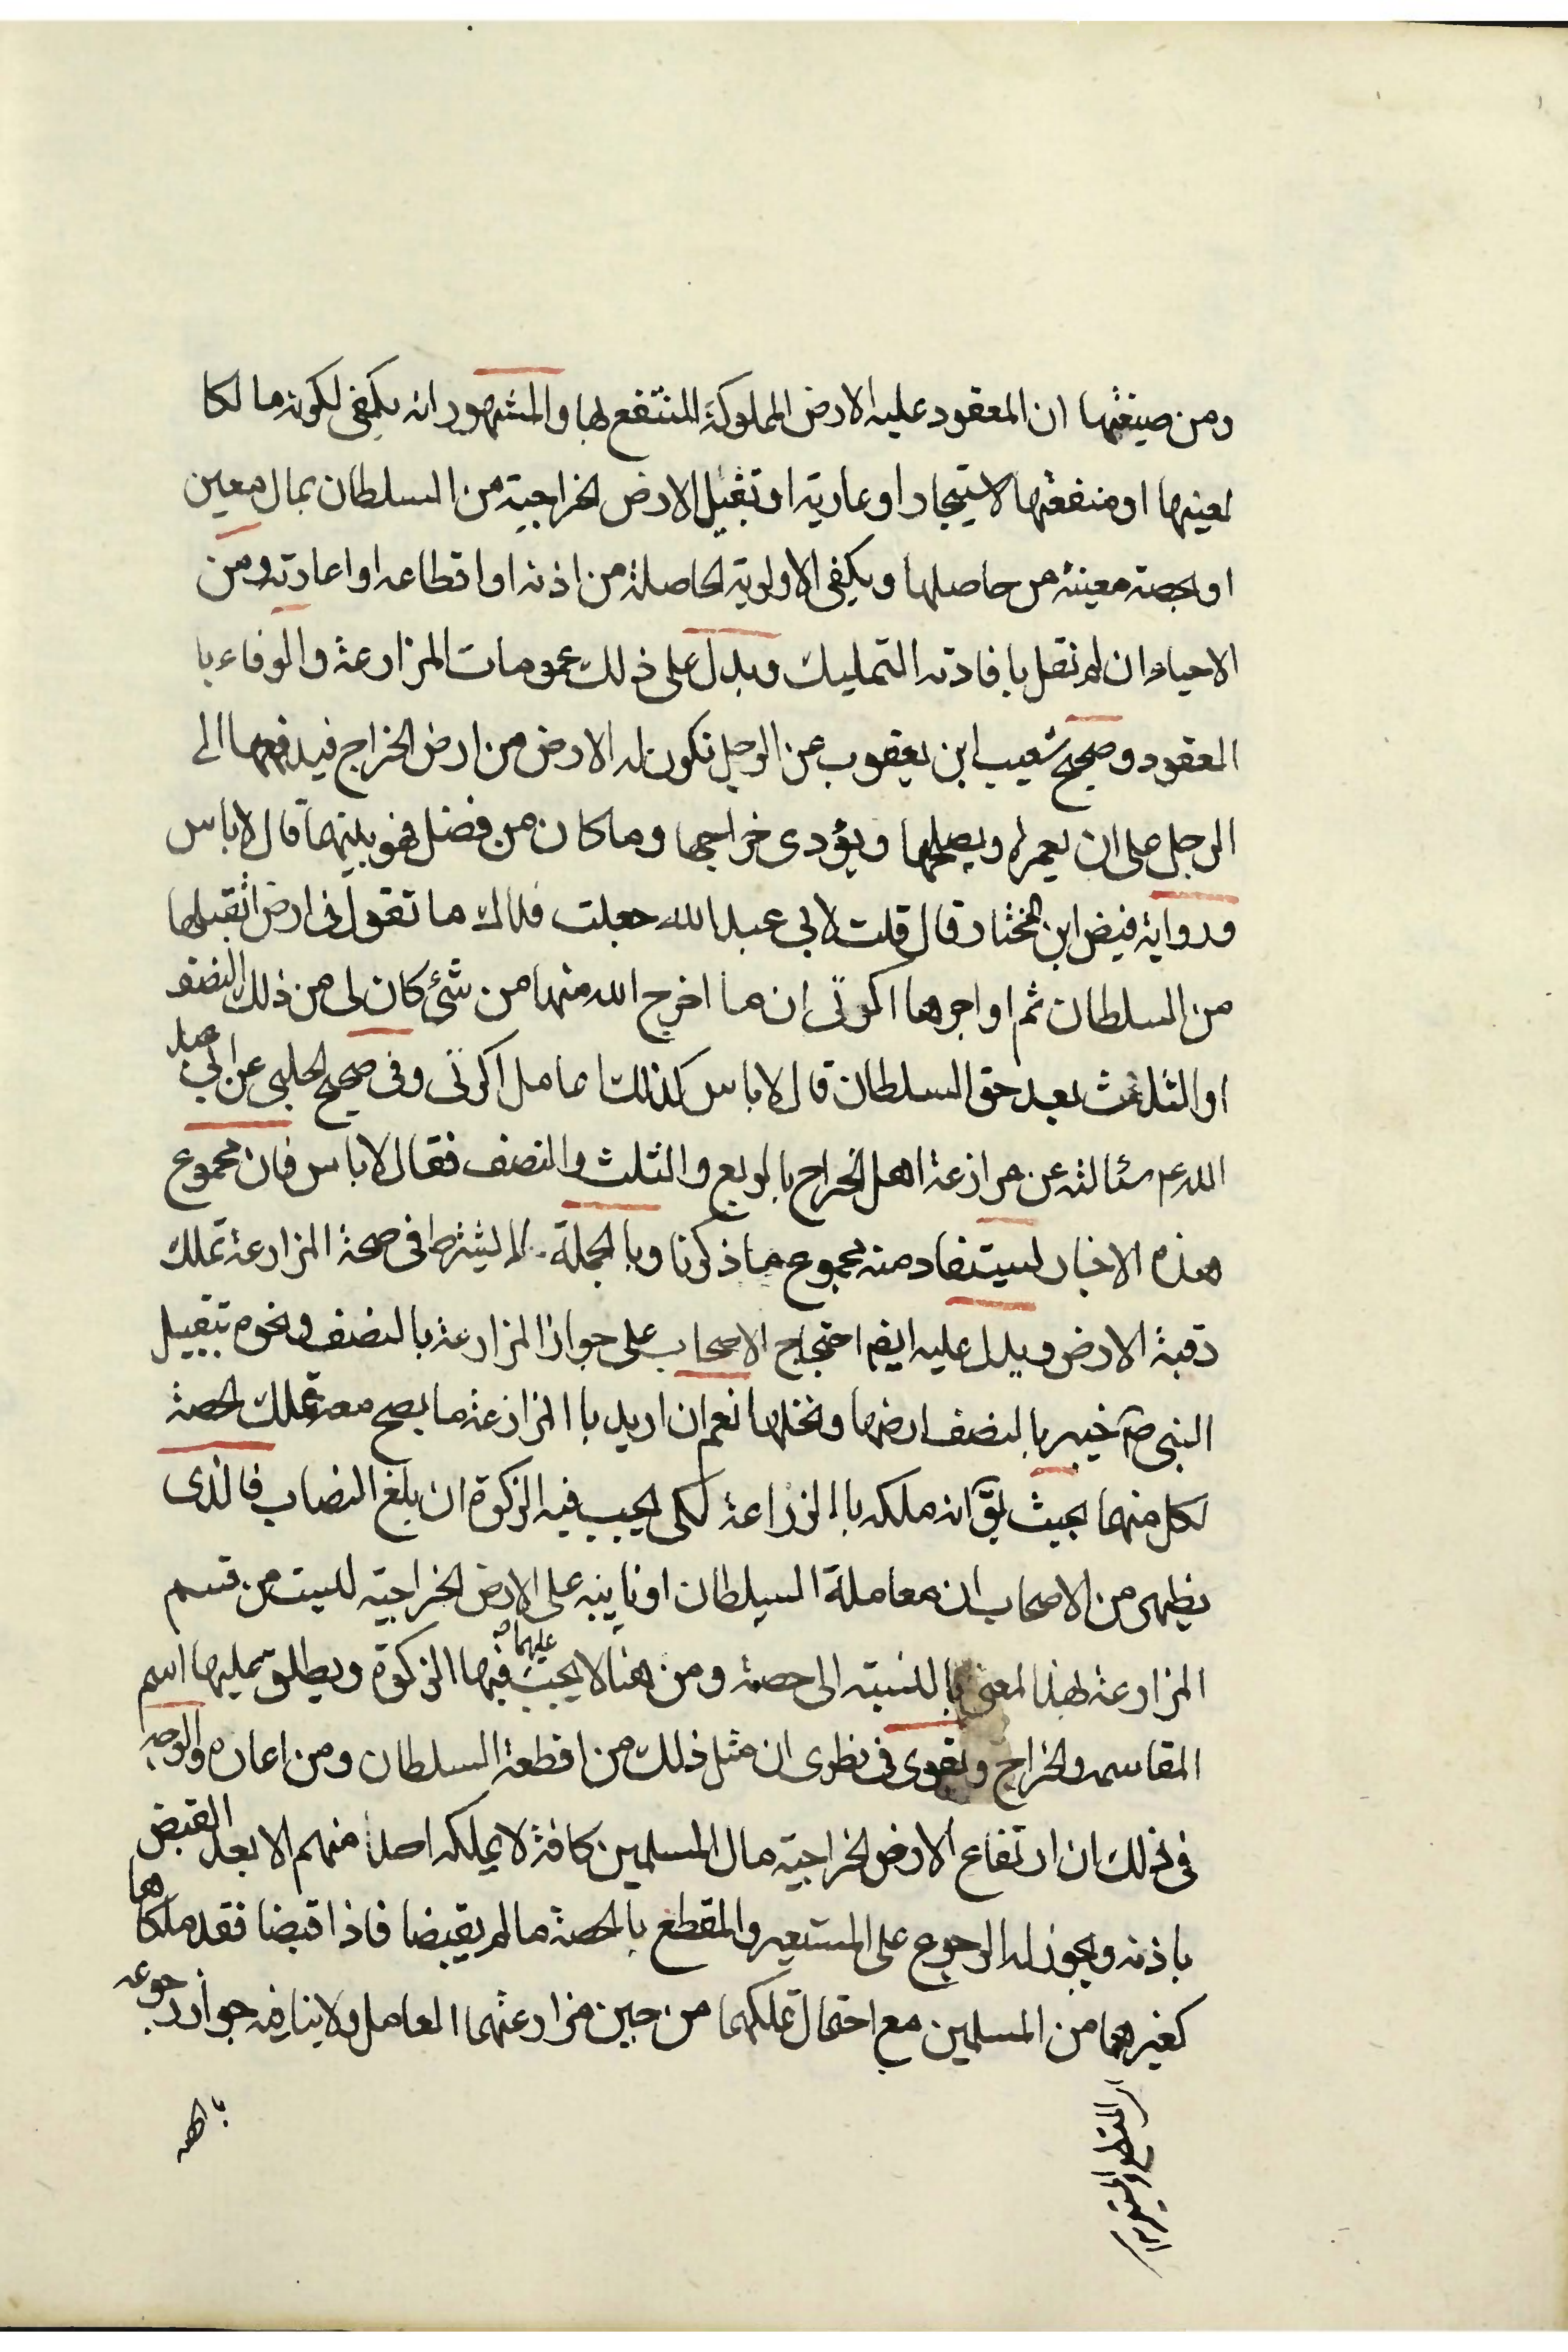 ومن صيغتها ان المعقود عليه الارض المملوكة المنتفع لها والمشهور انه يكفى لكونه مالكا
لعينها او منفعتها لاستيجار او عارية او تقبيل الارض الخراجية من السلطان بمال معين
او بحصته معينة من حاصلها ويكفى الاولوية الحاصلة من اذنه او اقطاعه او اعارته ومن
الاحياء ان لم نقل بافادته التمليك ويدل على ذلك عمومات المزارعة والوفاء با
العقود وصحيح شعيب ابن يعقوب عن الرجل تكون له الارض من ارض الخراج فيدفعها الى
الرجل على ان يعمرها ويصلحها ويؤدى خراجها وما كان من فضل فهو بينهما قال لاباس
ورواية فيض ابن المختار قال قلت لابي عبد الله جعلت فداك ما تقول فى ارض اتقبلها
من السلطان ثم اواجرها اكرتى ان ما اخرج الله منها من شئ كان لى من ذلك النصف
او الثلث بعد حق السلطان قال لاباس كذلك اعامل اكرتى وفى صحيح الحلبى عن ابي عبد
الله عم سئالته عن مزارعة اهل الخراج بالربع والثلث والنصف فقال لاباس فان مجموع
هذه الاخبار ليستفاد منه مجموع ما ذكرنا وبالجملة لا يشترط فى صحة المزارعة تملك
رقبة الارض ويدل عليه ايضم احتجاج الاصحاب على جواز المزارعة بالنصف ونحوه بتقبيل
النبى ص خيبر بالنصف ارضها ونخلها نعم ان اريد با المزارعة ما يصح معه تملك الحصة
لكل منهما بحيث يق انه ملكه با الزراعة لكى يجب فيه الزكوة ان بلغ النصاب فالذى
يظهر من الاصحاب ان معاملة السلطان او نايبه على الارض الخراجية ليست من قسم
المزارعة لهذا لمعنى بالنسبة الى حصته ومن هنا لا يجب عليهما فيها الزكوة ويطلق عليها اسم
المقاسمه والخراج ويقوى فى نظرى ان مثل ذلك من اقطعة السلطان ومن اعاره والوجه
فى ذلك ان ارتفاع الارض الخراجية مال المسلمين كافة لا يملكه احدا منهم الا بعد القبض
باذنه ويجوز له الرجوع على المستعير والمقطع بالحصة مالم يقبضا فاذا قبضا فقد ملكاها
كغيرهما من المسلمين مع احتمال تملكهما من حين مزارعتهما العامل ولا ينافيه جواز رجوعه